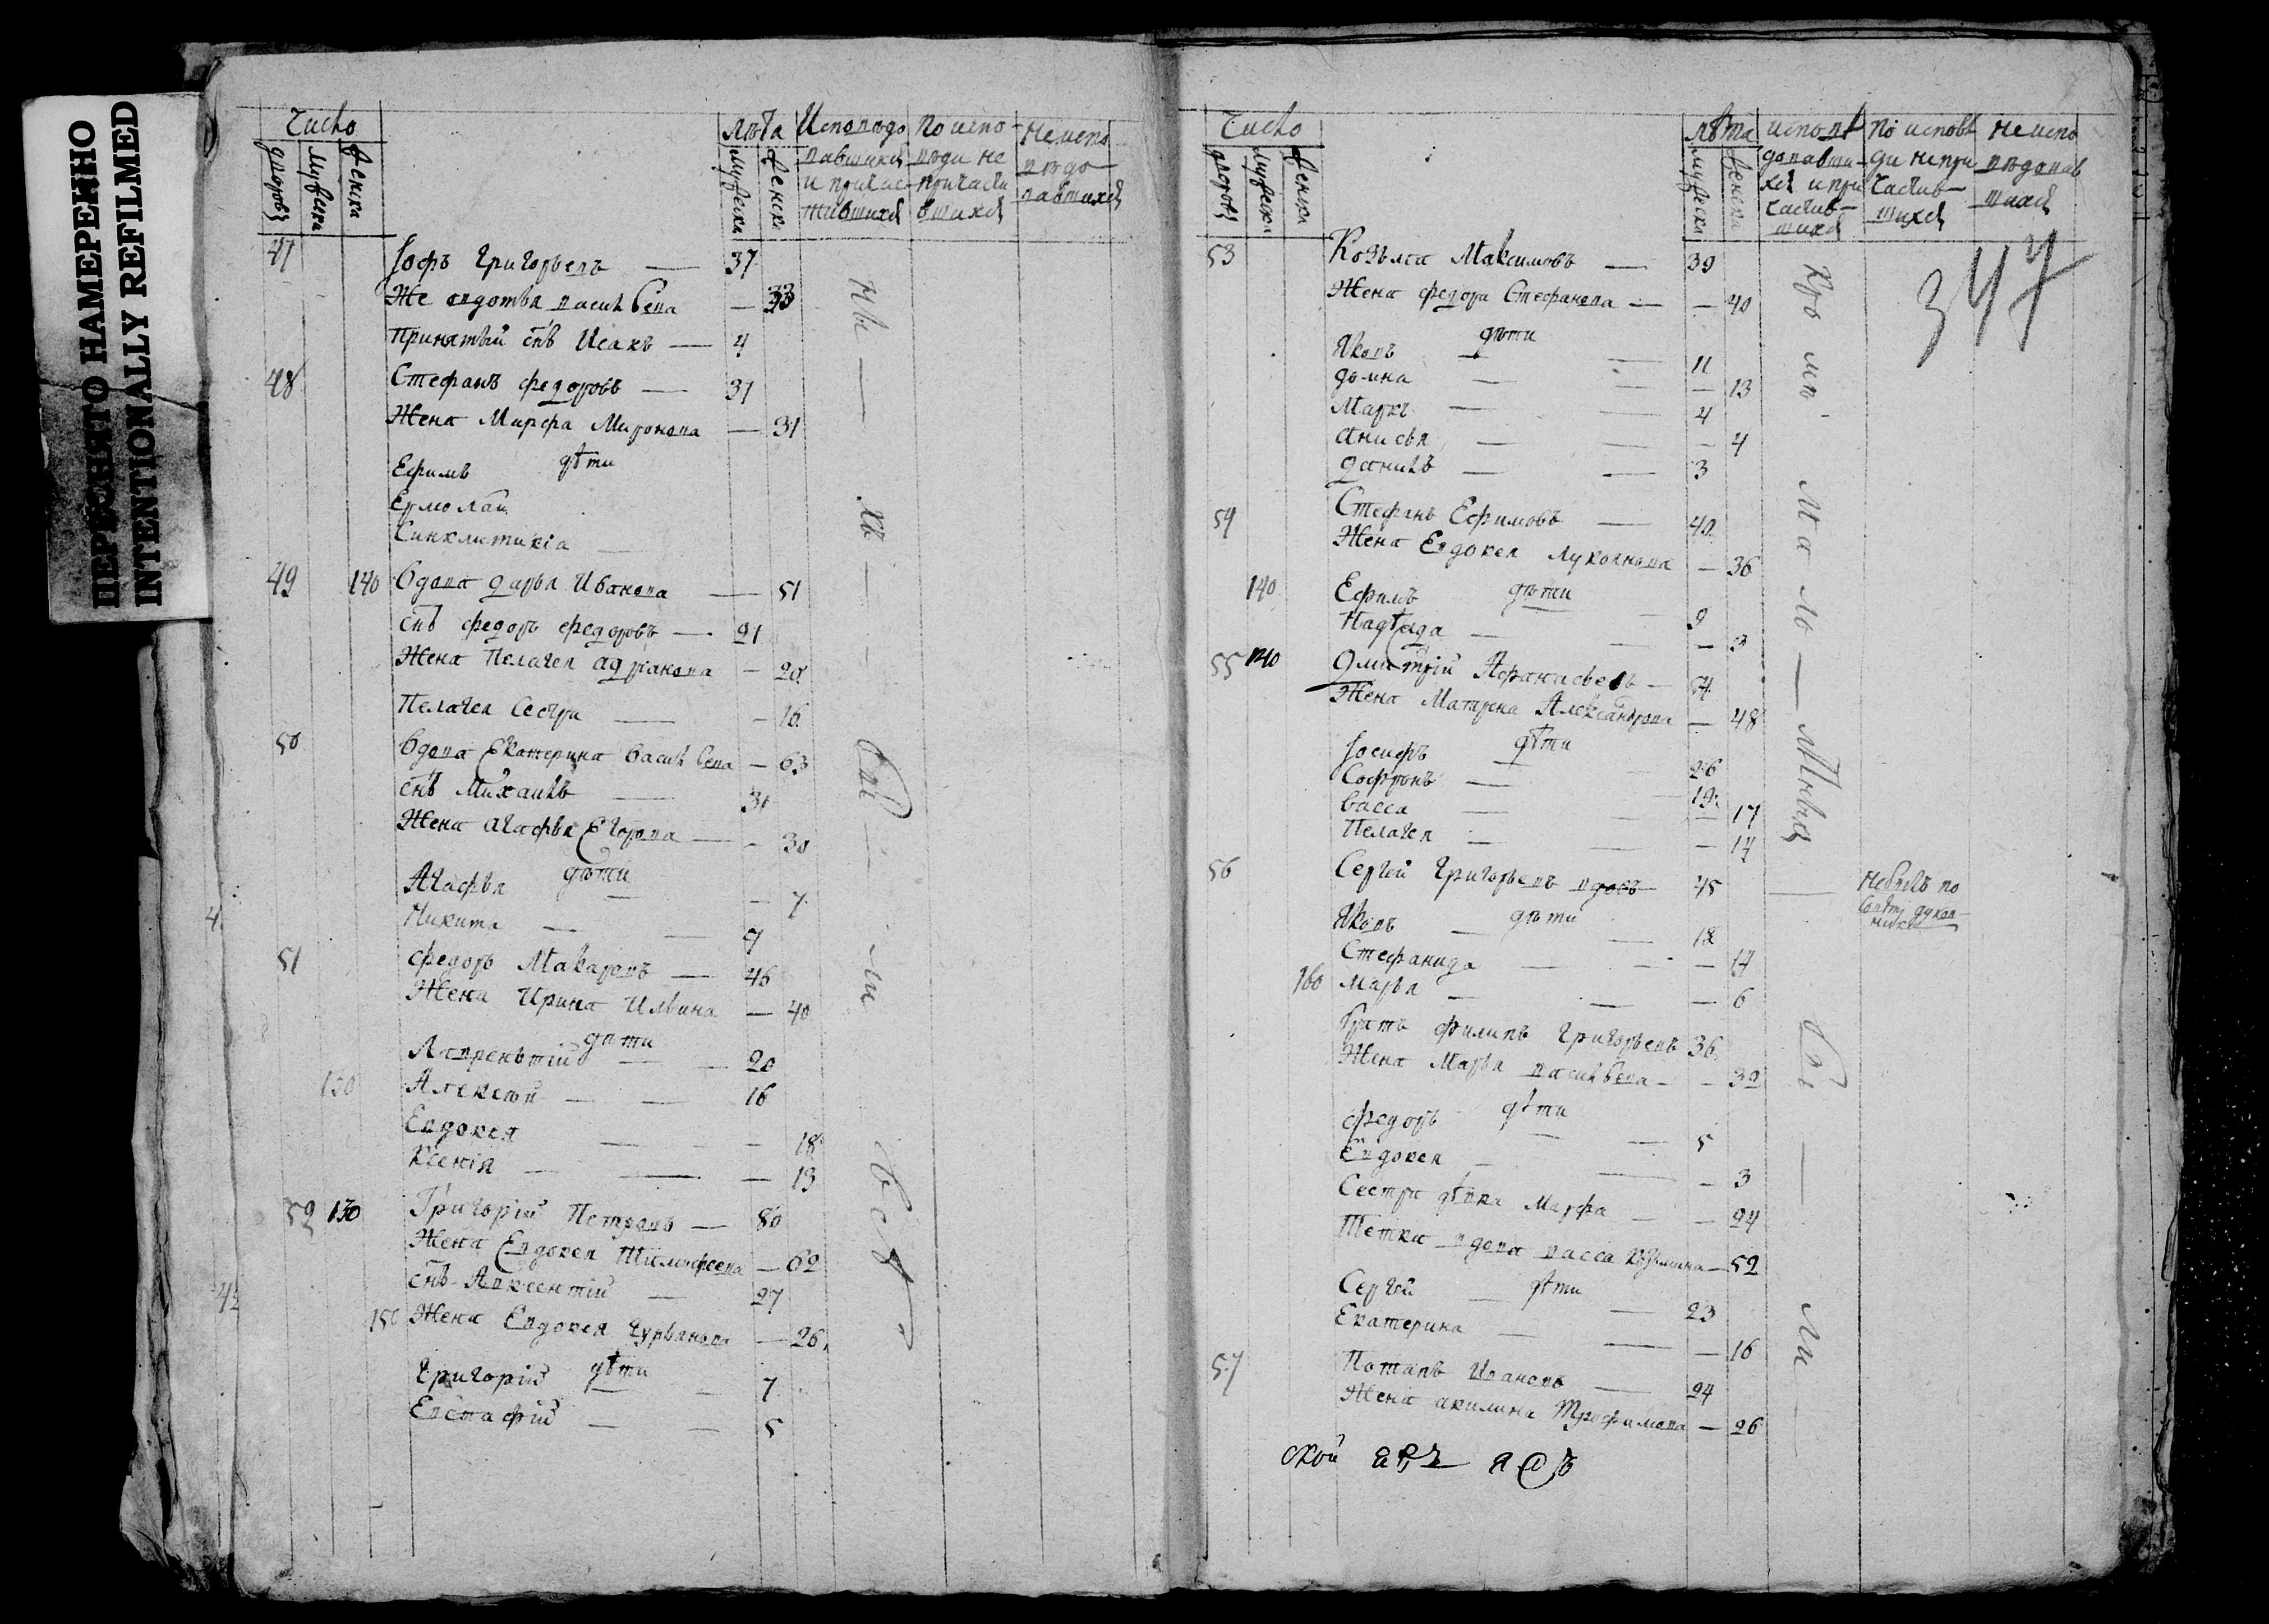 ПЕРЕСНЯТО НАМЕРЕННО
INTENTIONALLY REFILMED
Число
дворовъ
мужеска
женска
Лѣта
мужеска
женска
Исповѣдо
вавшихся
и причас
тившихся
По испо
вѣди не
причасти
вшихся
Не испо
вѣдо
вавшихся
47 Іофъ Григорьевъ — 37
Же овдотья васильева — 33
Принятый снъ Исакъ — 4
48 Стефанъ федоровъ — 31
Жена Марфа Миронова — 31
дѣти
Ефимъ
Ермолаи
Синклитикіа —
49 140 вдова дарья Иванова — 51
снъ федоръ федоровъ — 21
Жена Пелагея адріанова — 20
Пелагея Сестра — 16
50 вдова Екатерина васильева — 63
снъ Михаилъ — 31
Жена агафья Егорова — 30
дѣти
Агафья — 7
Никита — 7
51 федоръ Макаровъ — 46
Жена Ирина Ильина — 40
дѣти
Лаврентій — 20
130 Алексѣй — 16
Евдокея — 18
Ксенія — 13
52 130 Григорій Петровъ — 80
Жена Евдокея Тимофеева — 62
снъ Авксентій — 27
150 Жена Евдокея Гурьянова — 26
дѣти
Григорій — 7
Евстафій — 5
Число
дворовъ
мужеска
женска
лѣта
мужеска
женска
исповѣ
довавши
хся и при
частив
шихся
по исповѣ
ди непри
частив
шихся
не испо
вѣдовав
шихся
347
53 Козьма Максимовъ — 39
Жена федора Стефанова — 40
дѣти
Яковъ — 11
домна — 13
Маркъ — 4
анисья — 4
данилъ — 3
54 Стефанъ Ефимовъ — 40
Жена Евдокея лукоянова — 36
дѣти
140 Ефимъ — 9
Надѣжда — 3
55 140 Дмитрій Афанасьевъ — 54
Жена Матрена Александрова — 48
дѣти
Іосифъ — 26
Софронъ — 19
васса — 17
Пелагея — 14
56 Сергей Григорьевъ вдовъ 45
Небылъ по
дѣти
Яковъ — 18
Стефанида — 14
160 марья — 6
братъ филипъ Григорьевъ 36
Жена Марья васильева — 32
дѣти
федоръ — 5
Евдокея — 3
Сестра дѣвка Марфа — 24
Тетка вдова васса козьмина — 52
дѣти
Сергѣй — 23
Екатерина — 16
57 Потапъ Ивановъ — 24
Жена акилина Трофимова — 26
ской